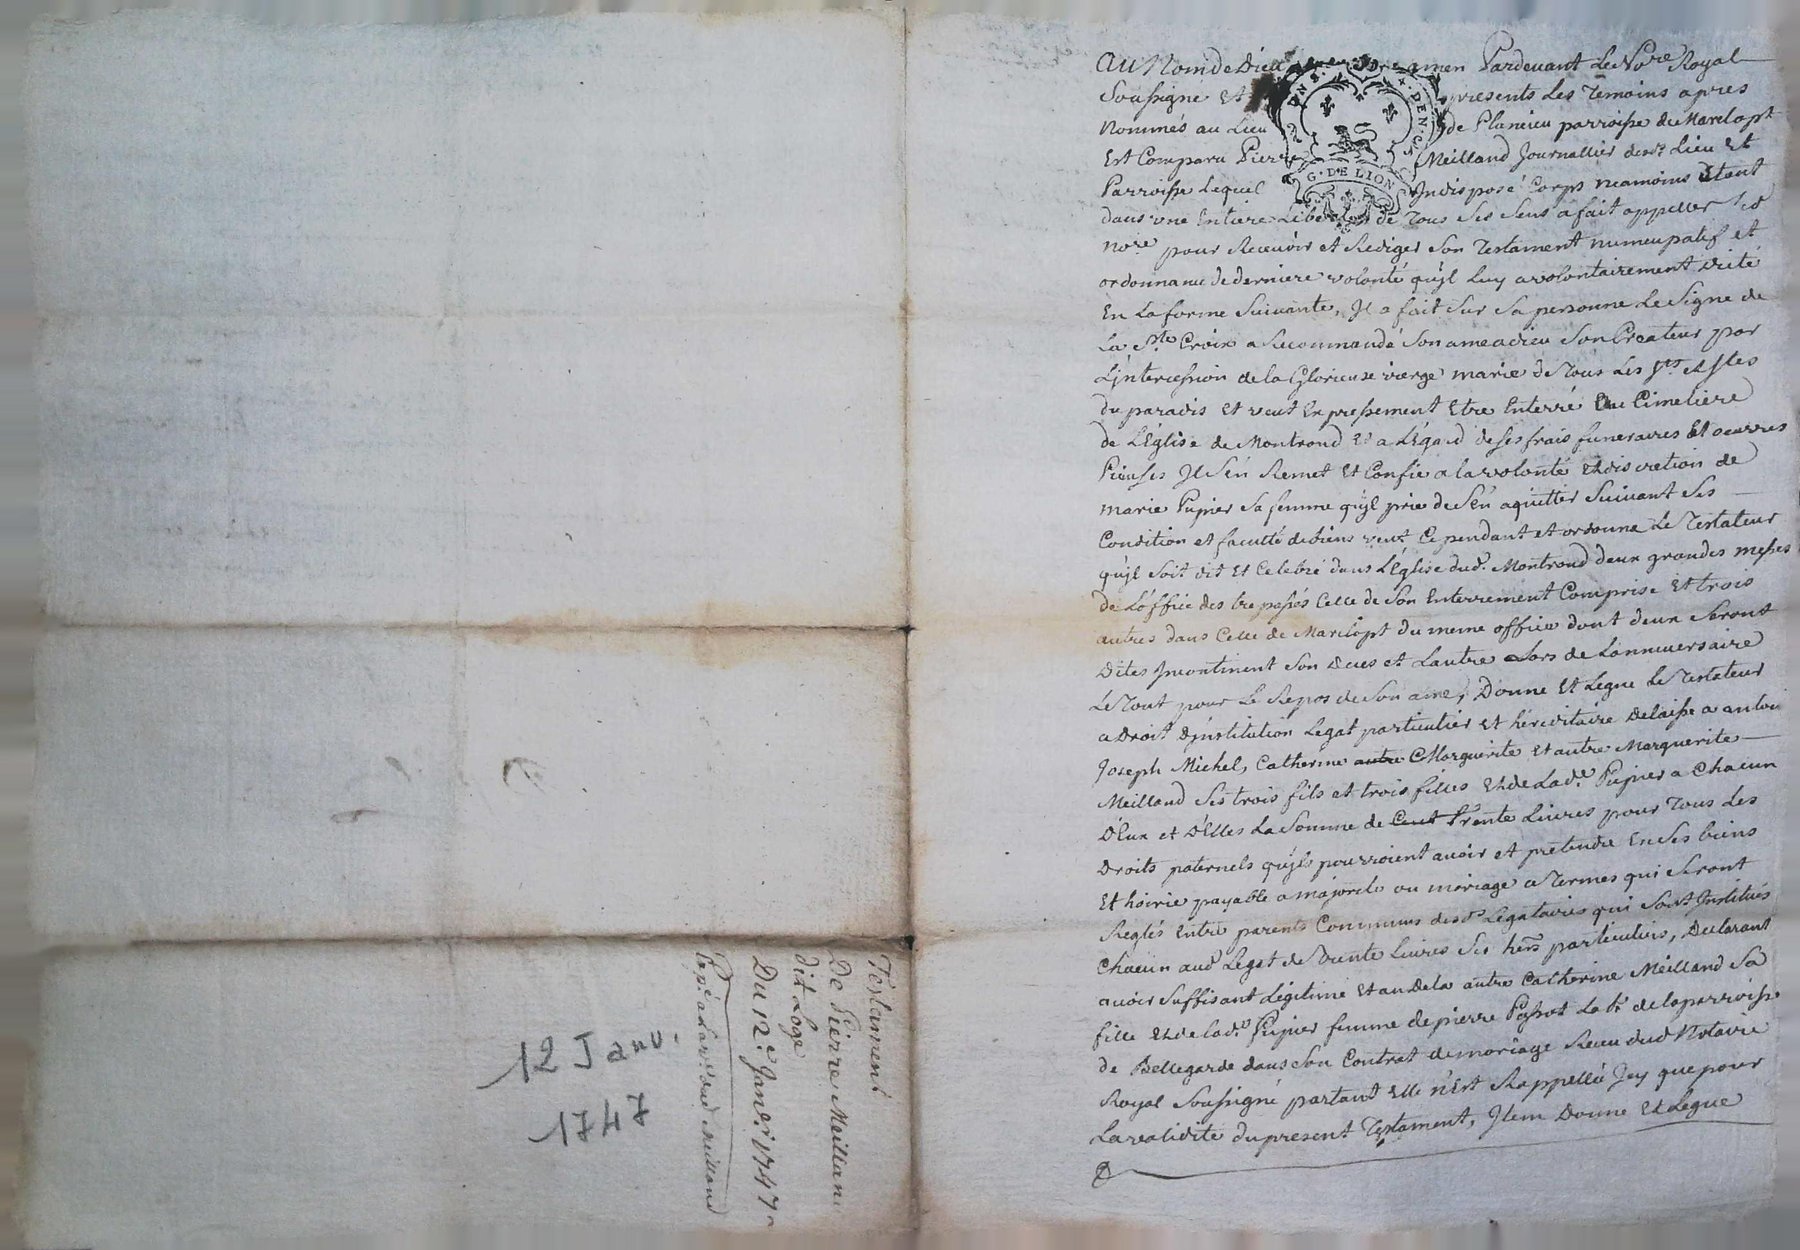 Testament
De Pierre Meilland
dit Loge
Du 12e Janvr. 1747
12 Janv.
1747
G. DE LION
Au Nom de Dieu amen Pardevant Le Nore Royal
Soussigné Et presents Les Temoins apres
Nommés au Lieu de Plancieu parroisse de Marclopt
Est Comparu Pierre Meilland Journallier desd. Lieu Et
Parroisse Lequel Indisposé Corps neamoins Etant
dans une Entiere Liberté de Tous Ses Sens a fait appeller led
nore pour Recevoir et Rediger Son Testament nuncupatif et
ordonnance de derniere volonté qu'jl Luy a volontairement dicté
En La forme Suivante, Jl a fait Sur Sa personne Le Signe de
La Ste Croix a Recommandé Son ame a dieu Son Createur par
L'jntercession de la Glorieuse vierge marie de Tous Les Sts et Stes
du paradis Et veut Expressement Etre Enterré Au Cimetiere
de L'Église de Montrond Et a L'égard de ses frais funeraires Et oeuvres
Pieuses Jl S'én Remet Et Confie a la volonté Et discretion de
marie Pupier Sa femme qu'jl prie de S'én aquitter Suivant Ses
Condition et faculté de biens veut Cependant et ordonne Le Testateur
qu'jl Soit dit Et Celebré dans L'Église dud. Montrond deux grandes messes
de L'office des trepassés Celle de Son Enterrement Comprise Et trois
autres dans Celle de Marclopt du meme office dont deux Seront
Dites Jncontinent Son deces et Lautre Lors de Lanniversaire
Le Tout pour Le Repos de Son ame, Donne Et Legue Le Testateur
a Droit D'jnstitution Legat particulier Et héréditaire Delaisse a antoi
Joseph Michel, Catherine autre Marguerite Et autre Marguerite
Meilland Ses trois fils et trois filles Et de Lade. Pupier a Chacun
D'Eux et D'Elles La Somme de Cent Trente Livres pour Tous Les
Droits paternels qu'jls pourroient avoir et pretendre En Ses biens
Et hoirie payable a majorité ou mariage a Termes qui Seront
Reglés Entre parents Communs desds Legataires qui Sont Jnstitués
Chacun aud Legat de Trente Livres Ses hers particuliers, Declarant
avoir Suffisant Légitime Et au Dela autre Catherine Meilland Sa
fille Et de Lade. Pupier femme de pierre Labr de la parroisse
de Bellegarde dans Son Contrat de mariage Receu dud Notaire
Royal Soussigné partant Elle n'Est Rappellée Jcy que pour
La validite du present Testament, Jtem Donne Et Legue